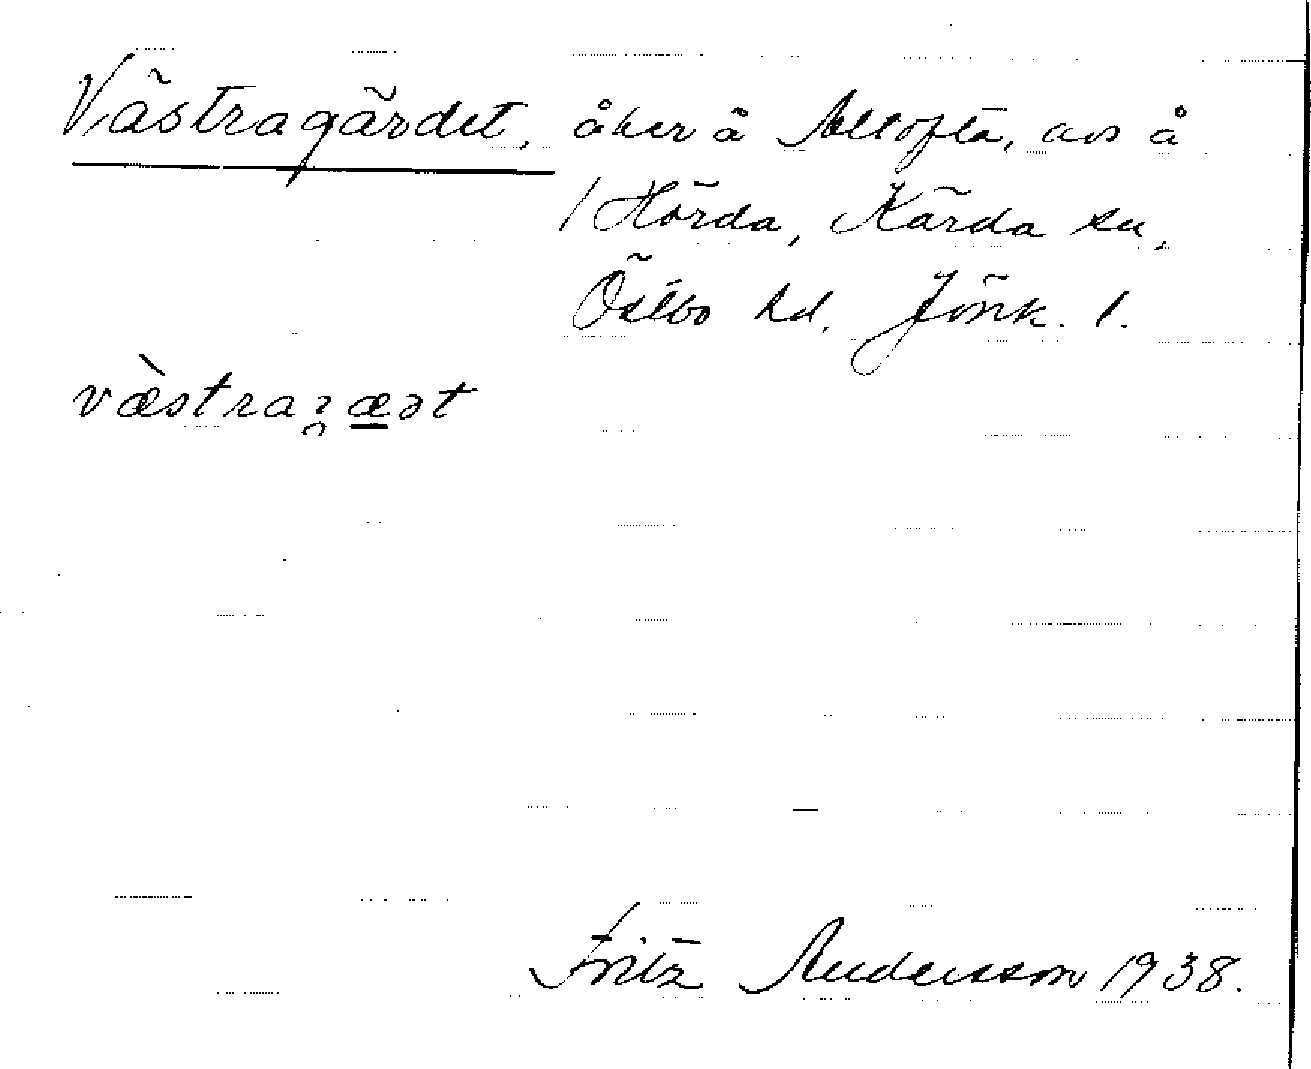 Västragärdet, åker å Altofta, avs å
/ Hörda, Kärda sn,
Östbo hd. Jönk. l.
væ̀straꝛæət
Fritz Andersson 1938.